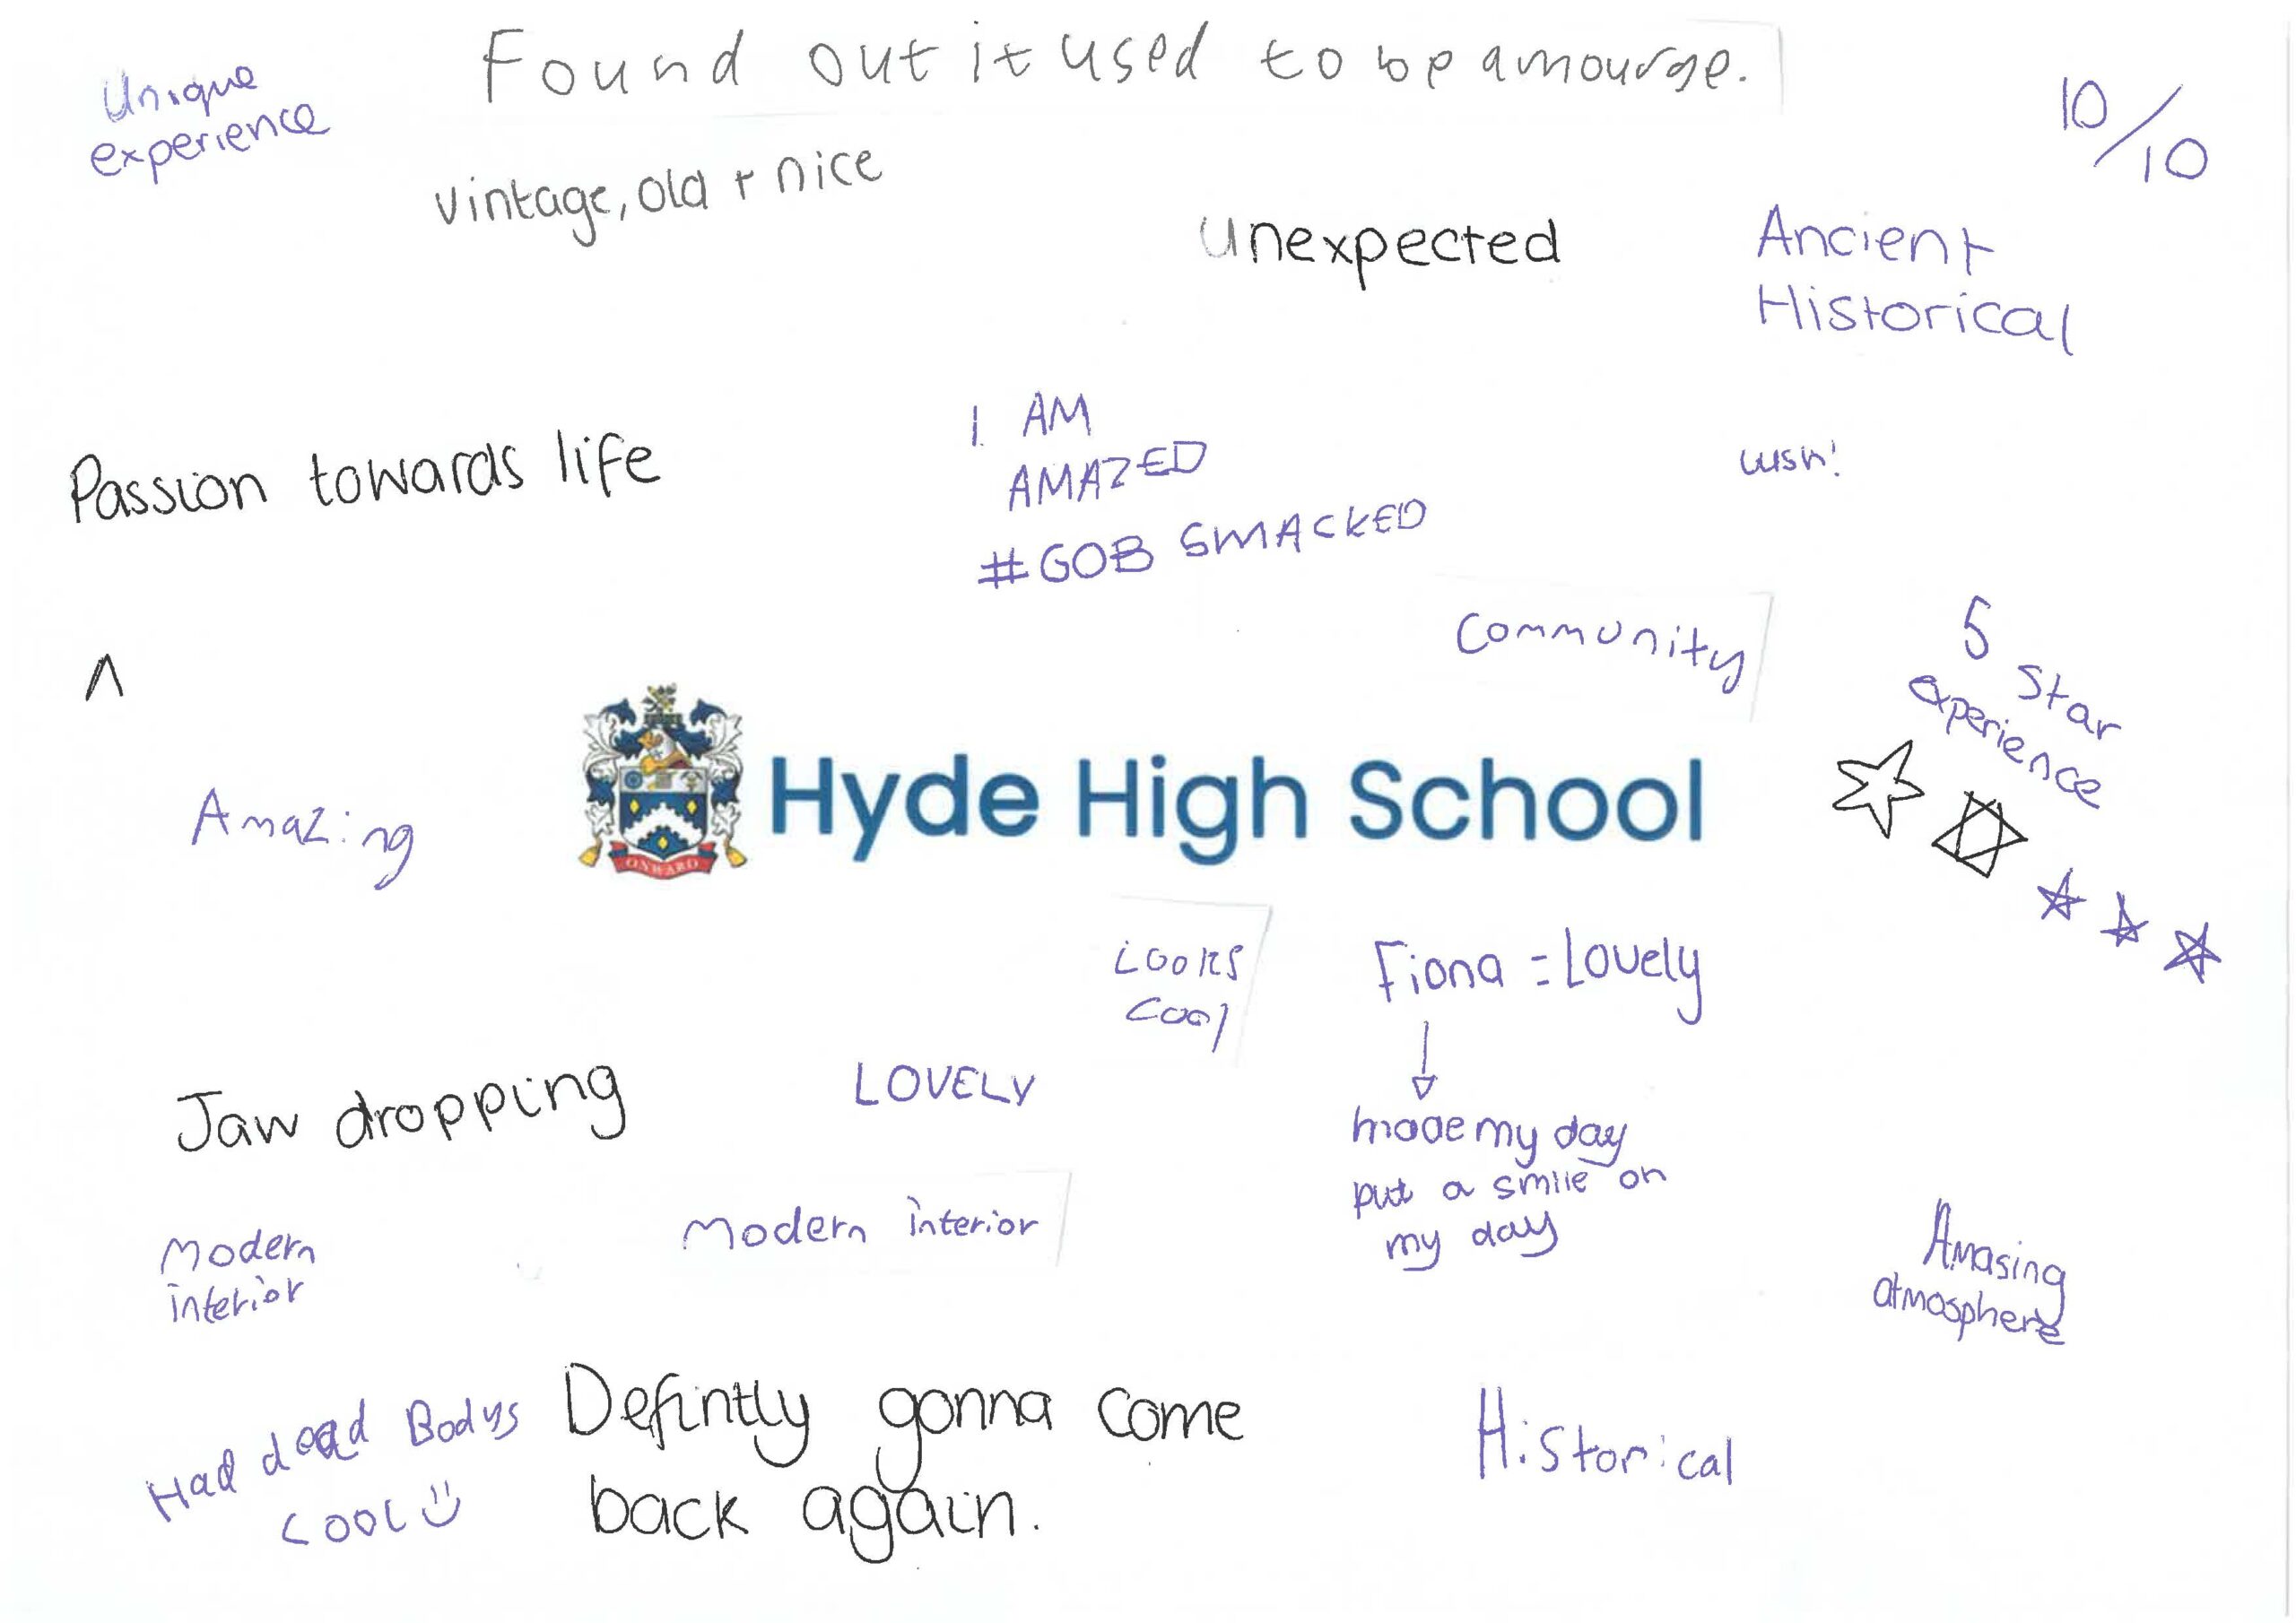 Unique
experience
Found out it used to be a mourge.
10/10
vintage, old + nice
Unexpected
Ancient
Historical
Passion towards life
I AM
AMAZED
#GOB SMACKED
Lush!
Community
5 Star
experience
Amazing
ONWARD
Hyde High School
Looks
Cool
Fiona = Lovely
made my day
put a smile on
my day
Jaw dropping
LOVELY
Modern
interior
Modern interior
Amasing
atmosphere
Had dead Bodys
COOL
Defintly gonna come
back again.
Historical